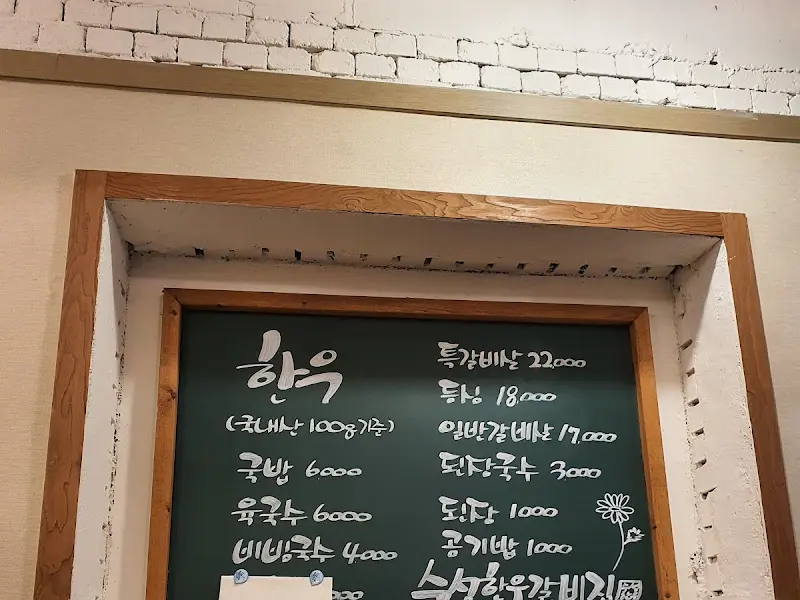 한우
(국내산 100g기준)
국밥 6000
육국수 6000
비빔국수 4000
특갈비살 22,000
등심 18000
일반갈비살 17,000
된장국수 3000
된장 1000
공기밥 1000
한우갈비집